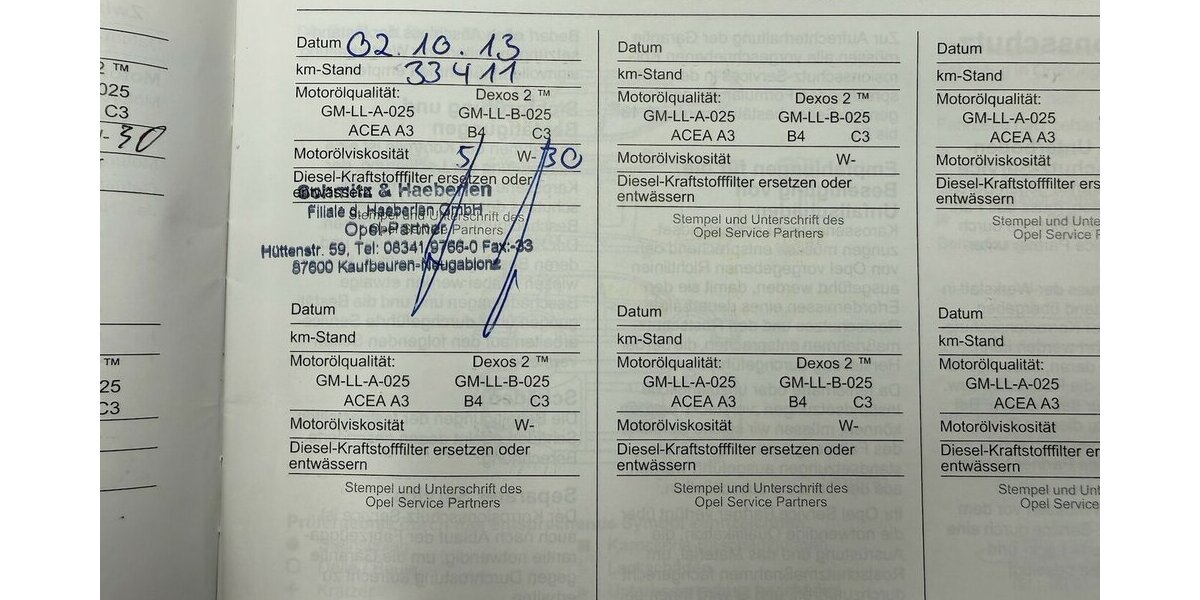 2 ™
025
C3
- 30
™
25
C3
Datum 02.10.13
km-Stand 33411
Motorölqualität: Dexos 2 ™
GM-LL-A-025 GM-LL-B-025
ACEA A3 B4 C3
Motorölviskosität 5 W- 30
Diesel-Kraftstofffilter ersetzen oder
entwässern
Schmitz & Haeberlen
Filiale d. Haeberlen GmbH
Stempel und Unterschrift des
Opel-Partner
Opel Service Partners
Hüttenstr. 59, Tel: 08341/9766-0 Fax:-33
87600 Kaufbeuren-Neugablonz
Datum
km-Stand
Motorölqualität: Dexos 2 ™
GM-LL-A-025 GM-LL-B-025
ACEA A3 B4 C3
Motorölviskosität W-
Diesel-Kraftstofffilter ersetzen oder
entwässern
Stempel und Unterschrift des
Opel Service Partners
Datum
km-Stand
Motorölqualität: Dexos 2 ™
GM-LL-A-025 GM-LL-B-025
ACEA A3 B4 C3
Motorölviskosität W-
Diesel-Kraftstofffilter ersetzen oder
entwässern
Stempel und Unterschrift des
Opel Service Partners
Datum
km-Stand
Motorölqualität: Dexos 2 ™
GM-LL-A-025 GM-LL-B-025
ACEA A3 B4 C3
Motorölviskosität W-
Diesel-Kraftstofffilter ersetzen oder
entwässern
Stempel und Unterschrift des
Opel Service Partners
Datum
km-Stand
Motorölqualität:
GM-LL-A-025
ACEA A3
Motorölviskosität
Diesel-Kraftstofffilter ers
entwässern
Stempel und Unt
Opel Service P
Datum
km-Stand
Motorölqualität:
GM-LL-A-025
ACEA A3
Motorölviskosität
Diesel-Kraftstofffilter ers
entwässern
Stempel und Unt
Opel Service P